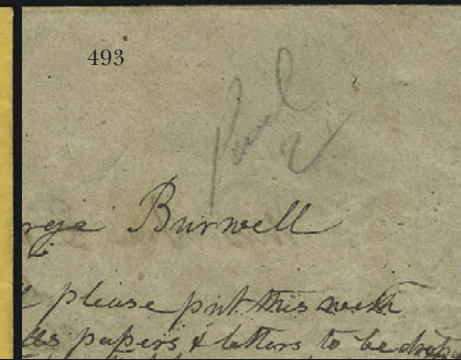 493
Paid
2
rge Burwell
please put this with
papers & letters to be drop